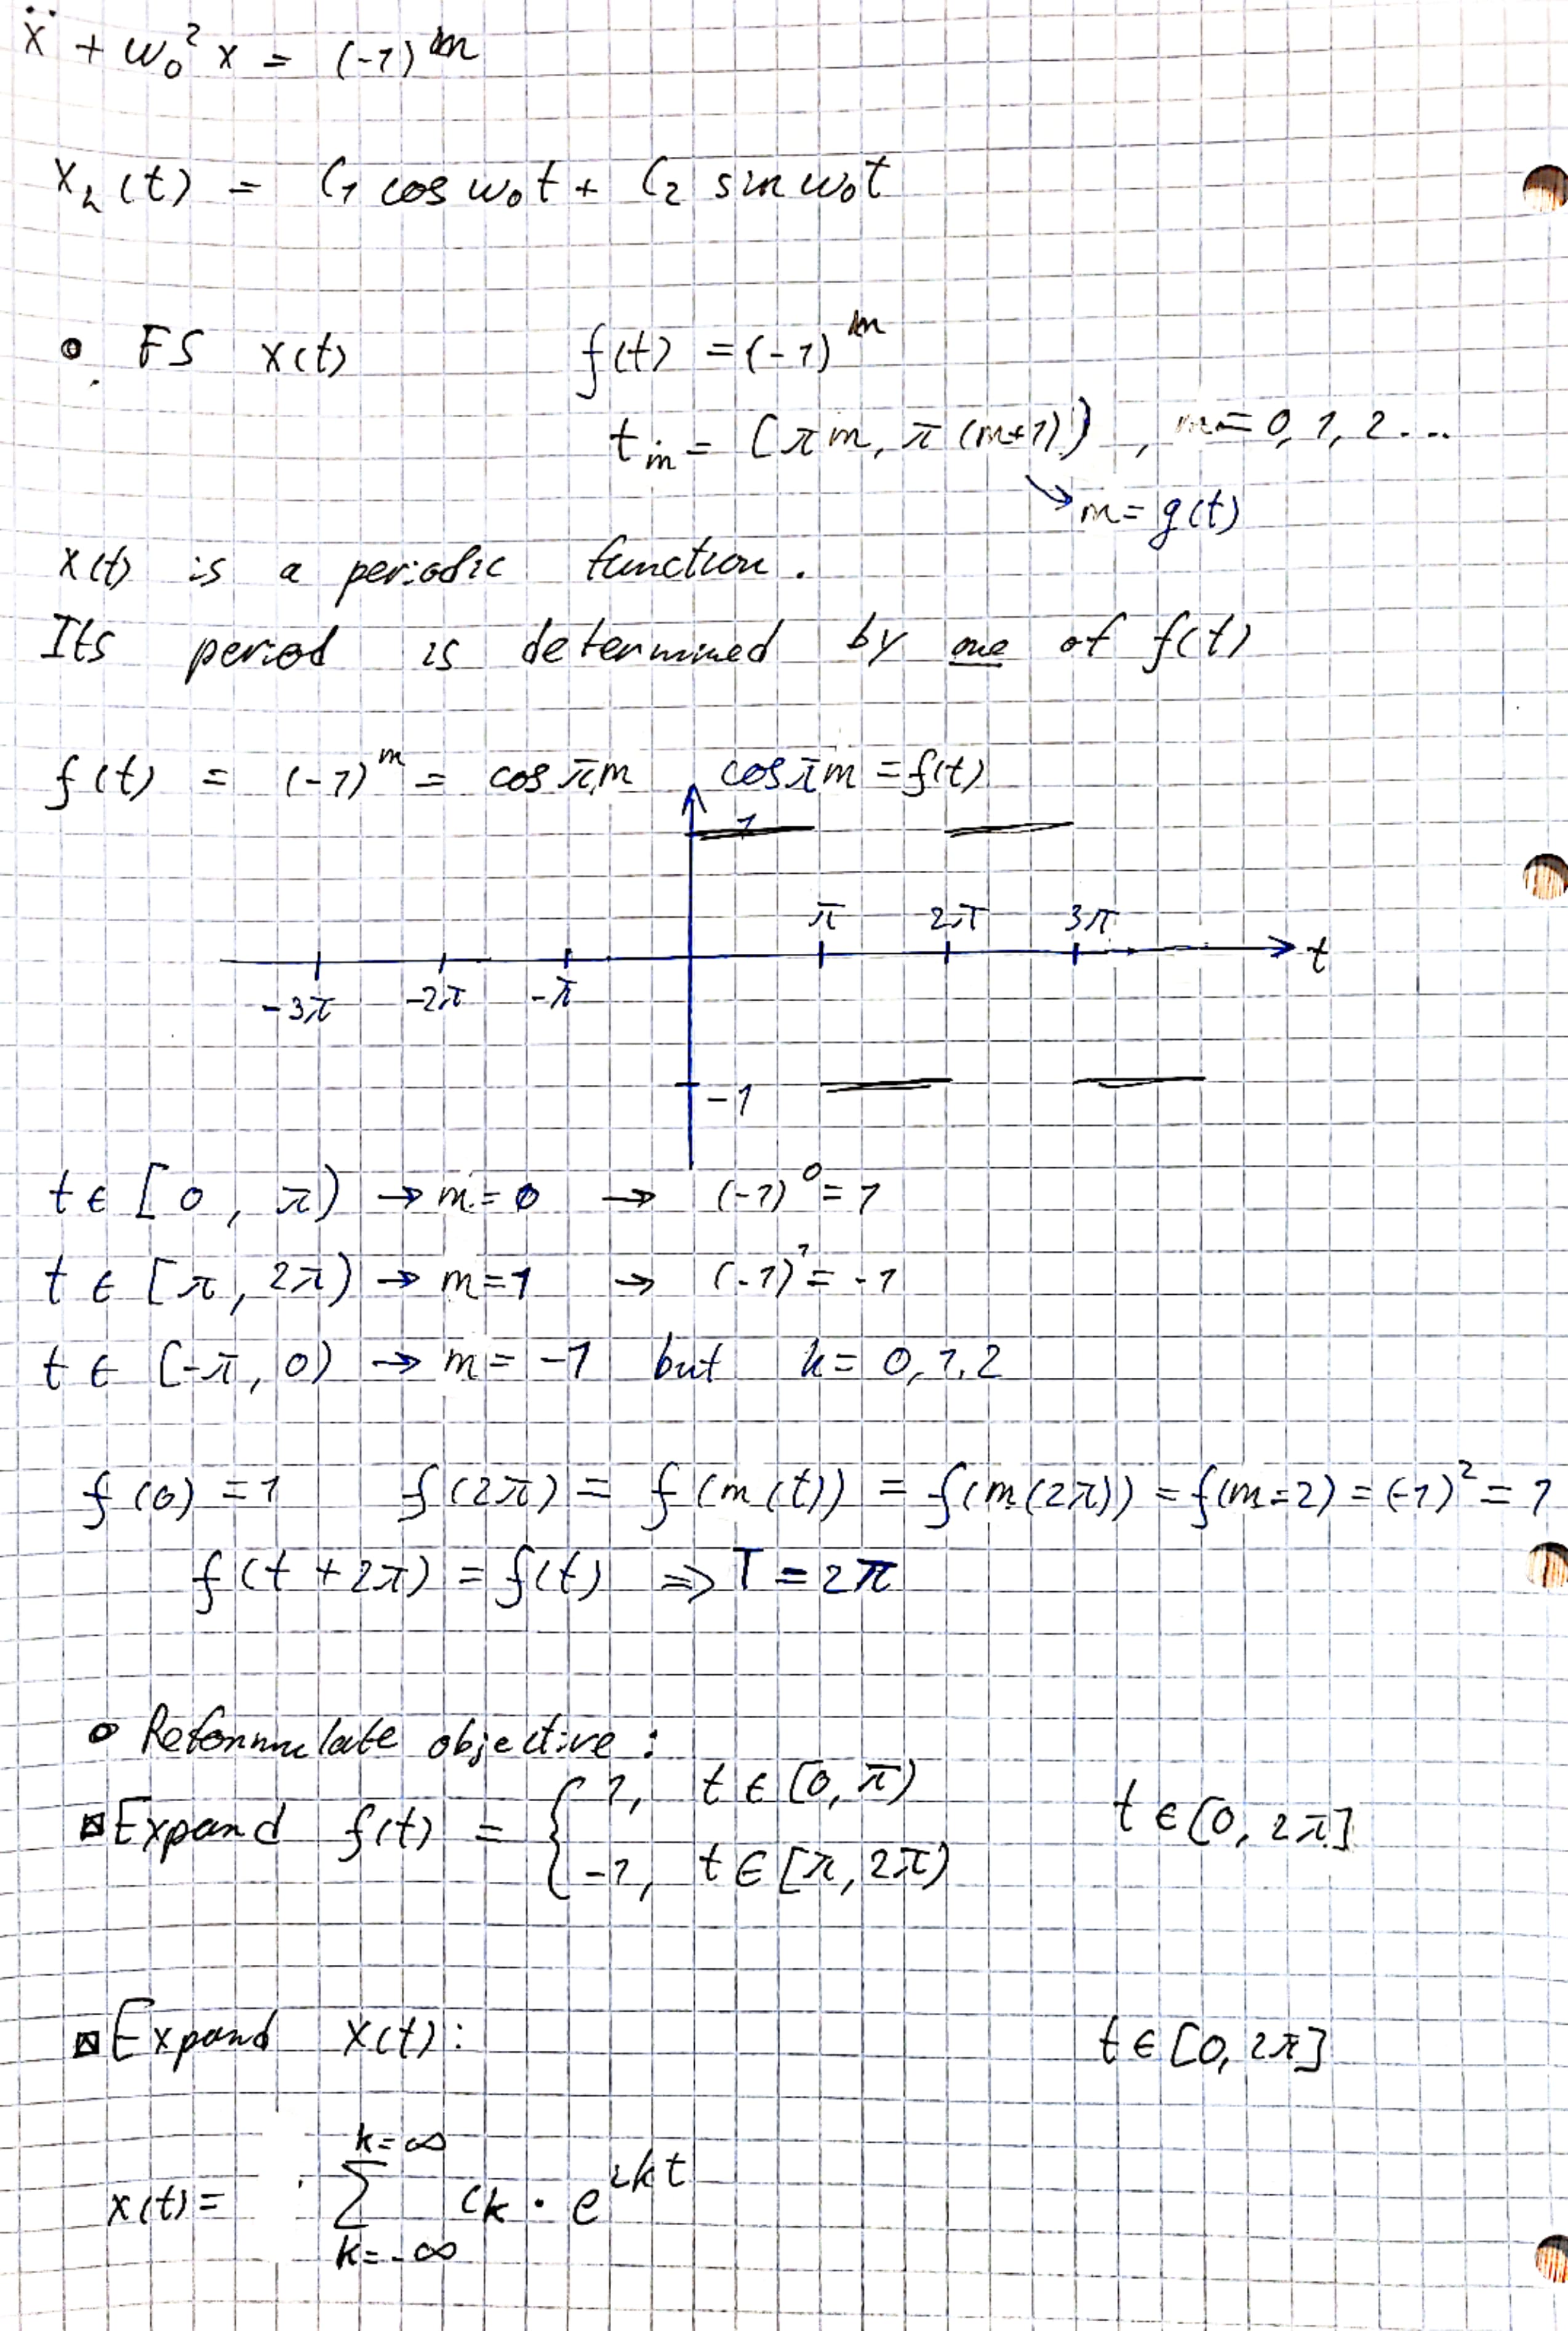 ẍ + ω₀² x = (-1)^m
x_h(t) = C₁ cos ω₀t + C₂ sin ω₀t
FS x(t) f(t) = (-1)^m
t_m = [πm, π(m+1)) , m = 0, 1, 2 ...
→ m = g(t)
x(t) is a periodic function.
Its period is determined by one of f(t)
f(t) = (-1)^m = cos πm cos πm = f(t)
1
π 2π 3π
t
-3π -2π -π
-1
t ∈ [0, π) → m = 0 → (-1)^0 = 1
t ∈ [π, 2π) → m = 1 → (-1)^1 = -1
t ∈ [-π, 0) → m = -1 but k = 0, 1, 2
f(0) = 1 f(2π) = f(m(t)) = f(m(2π)) = f(m=2) = (-1)^2 = 1
f(t + 2π) = f(t) ⇒ T = 2π
Reformulate objective:
Expand f(t) = { 1, t ∈ [0, π) t ∈ [0, 2π]
-1, t ∈ [π, 2π)
Expand x(t): t ∈ [0, 2π]
k = ∞
x(t) = ∑ c_k · e^{ikt}
k = -∞